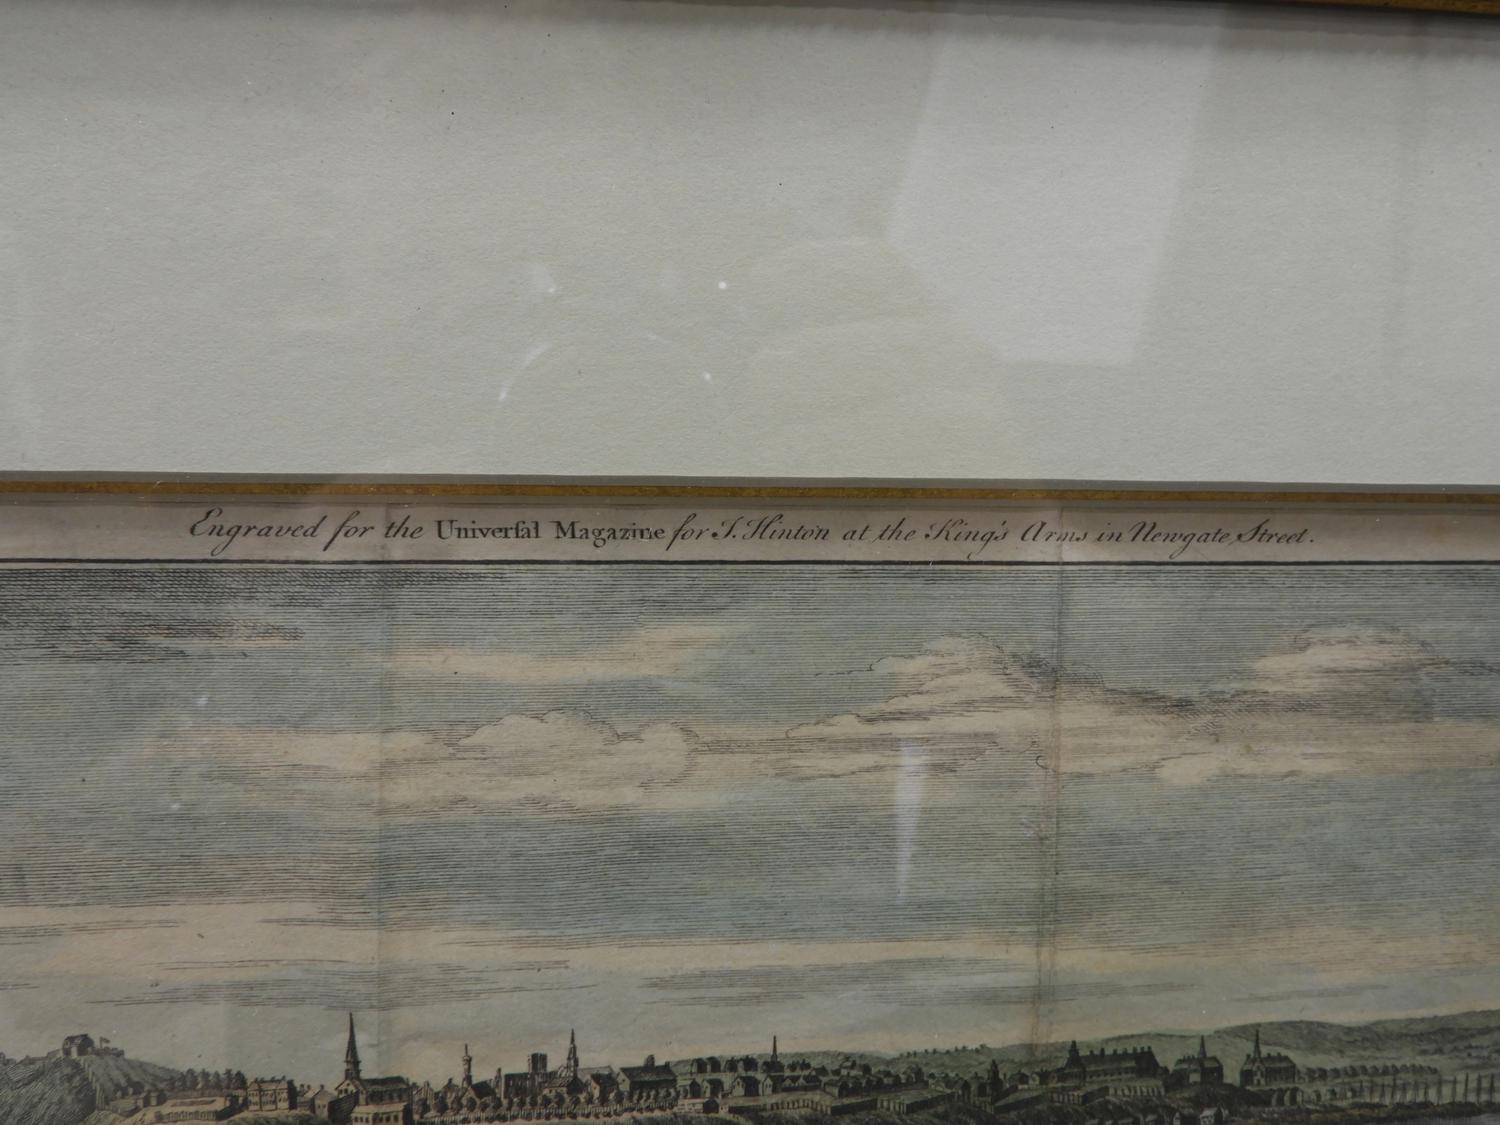 Engraved for the Univerſal Magazine for J. Hinton at the King's Arms in Newgate Street.